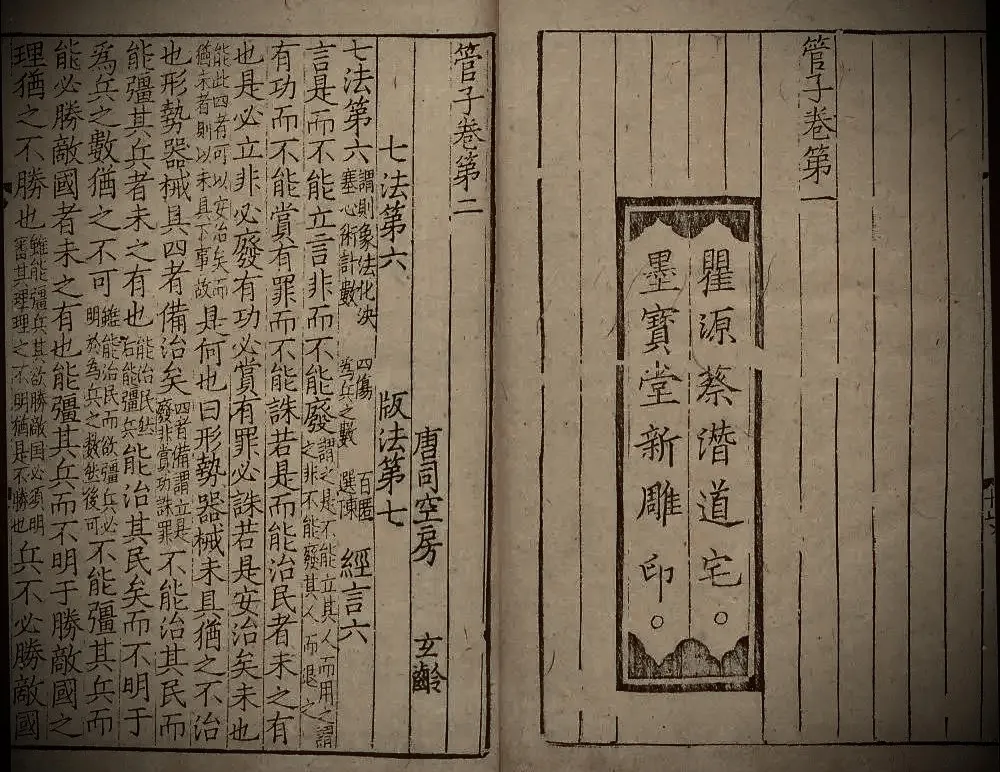 管子卷第一
瞿源蔡潛道宅。
墨寶堂新雕印。
管子卷第二
唐司空房 玄齡
七法第六 版法第七
七法第六 謂則象法化決塞心術計數 四傷 為兵之數 百匿 選陳 經言六
言是而不能立言非而不能廢 謂之是不能立其人而用之謂之非不能廢其人而退之
有功而不能賞有罪而不能誅若是而能治民者未之有
也是必立非必廢有功必賞有罪必誅若是安治矣未也
能此四者可以安治矣而猶未者則以未具下事故 是何也曰形勢器械未具猶之不治
也形勢器械具四者備治矣 四者備謂立是廢非賞功誅罪 不能治其民而
能彊其兵者未之有也 能治民然后能彊兵 能治其民矣而不明于
為兵之數猶之不可 雖能治民而欲彊兵必明於為兵之數然後可 不能彊其兵而
能必勝敵國者未之有也能彊其兵而不明于勝敵國之
理猶之不勝也 雖能彊兵其欲勝敵国必須明審其理理之不明猶是不勝也 兵不必勝敵國